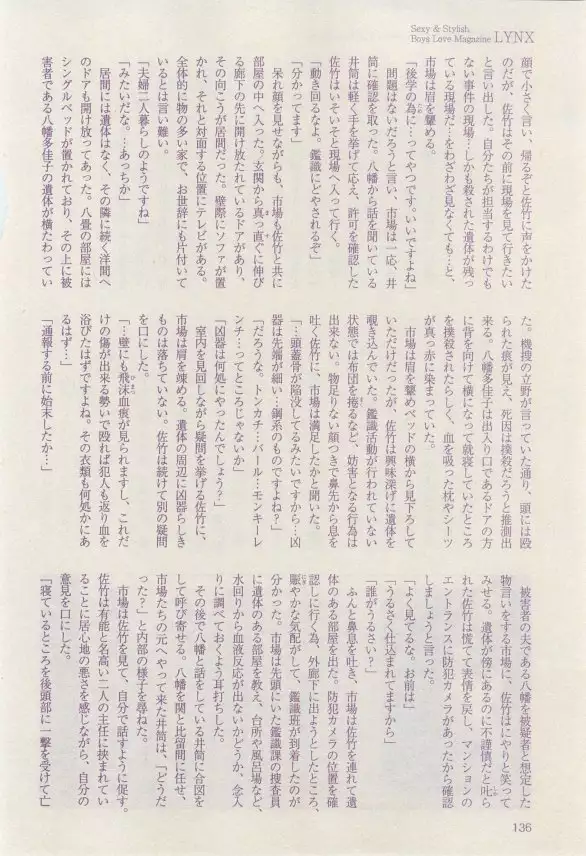 Sexy & Stylish
Boys Love Magazine LYNX
顔で小さく言い、帰るぞと佐竹に声をかけた
のだが、佐竹はその前に現場を見て行きたい
と言い出した。自分たちが担当するわけでも
ない事件の現場…しかも殺された遺体が残っ
ている現場だ…をわざわざ見なくても…と、
市場は眉を顰める。
「後学の為に…ってやつです。いいですよね」
問題はないだろうと言い、市場は一応、井
筒に確認を取った。八幡から話を聞いている
井筒は軽く手を挙げて応え、許可を確認した
佐竹はいそいそと現場へ入って行く。
「動き回るなよ。鑑識にどやされるぞ」
「分かってます」
呆れ顔を見せながらも、市場も佐竹と共に
部屋の中へ入った。玄関から真っ直ぐに伸び
る廊下の先に開け放たれているドアがあり、
その向こうが居間だった。壁際にソファが置
かれ、それと対面する位置にテレビがある。
全体的に物の多い家で、お世辞にも片付いて
いるとは言い難い。
「夫婦二人暮らしのようですね」
「みたいだな。…あっちか」
居間には遺体はなく、その隣に続く洋間へ
のドアも開け放ってあった。八畳の部屋には
シングルベッドが置かれており、その上に被
害者である八幡多佳子の遺体が横たわってい
た。機捜の立野が言っていた通り、頭には殴
られた痕が見え、死因は撲殺だろうと推測出
来る。八幡多佳子は出入り口であるドアの方
に背を向けて横になって就寝していたところ
を撲殺されたらしく、血を吸った枕やシーツ
が真っ赤に染まっていた。
市場は眉を顰めベッドの横から見下ろして
いただけだったが、佐竹は興味深げに遺体を
覗き込んでいた。鑑識活動が行われていない
状態では布団を捲るなど、妨害となる行為は
出来ない。物足りない顔つきで鼻先から息を
吐く佐竹に、市場は満足したかと聞いた。
「…頭蓋骨が陥没してるみたいですから…凶
器は先端が細い…鋼系のものですよね?」
「だろうな。トンカチ…バール…モンキーレ
ンチ…ってところじゃないか」
「凶器は何処にやったんでしょう?」
室内を見回しながら疑問を挙げる佐竹に、
市場は肩を竦める。遺体の周辺に凶器らしき
ものは落ちていない。佐竹は続けて別の疑問
を口にした。
「…壁にも飛沫血痕が見られますし、これだ
けの傷が出来る勢いで殴れば犯人も返り血を
浴びたはずですよね。その衣類も何処かにあ
るはず…」
「通報する前に始末したか…」
被害者の夫である八幡を被疑者と想定した
物言いをする市場に、佐竹はにやりと笑って
みせる。遺体が傍にあるのに不謹慎だと叱ら
れた佐竹は慌てて表情を戻し、マンションの
エントランスに防犯カメラがあったから確認
しましょうと言った。
「よく見てるな。お前は」
「うるさく仕込まれてますから」
「誰がうるさい?」
ふんと鼻息を吐き、市場は佐竹を連れて遺
体のある部屋を出た。防犯カメラの位置を確
認しに行く為、外廊下に出ようとしたところ、
賑やかな気配がして、鑑識班が到着したのが
分かった。市場は先頭にいた鑑識課の捜査員
に遺体のある部屋を教え、台所や風呂場など、
水回りから血液反応が出ないかどうか、念入
りに調べておくよう耳打ちした。
その後で八幡と話をしている井筒に合図を
して呼び寄せる。八幡を関と比留間に任せ、
市場たちの元へやって来た井筒は、「どうだ
った?」と内部の様子を尋ねた。
市場は佐竹を見て、自分で話すように促す。
佐竹は有能と名高い二人の主任に挟まれてい
ることに居心地の悪さを感じながら、自分の
意見を口にした。
「寝ているところを後頭部に一撃を受けて亡
136